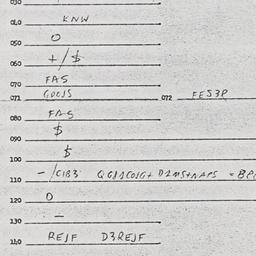 030
040 KNW
050 0
060 +/$
070 FAS
071 GOODS 072 FES3P
080 FAS
090 $
100 $
110 -/CIB3
120 0
130 : -
140 REJF D3REJF